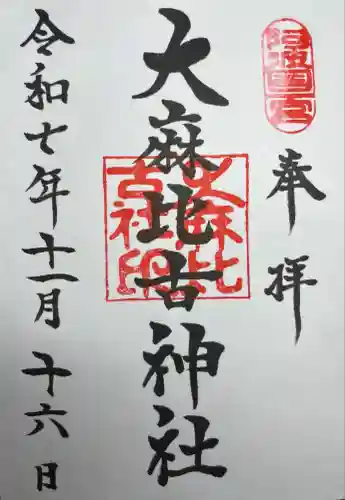 奉拝
大麻比古神社
大麻比古社印
令和七年十一月十六日